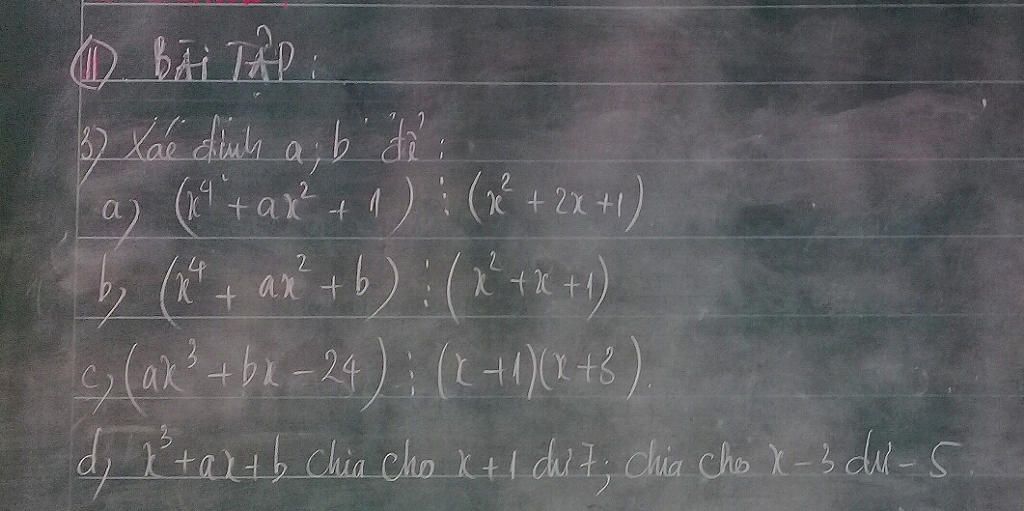 II. BÀI TẬP:
3) Xác định a; b để:
a) (x⁴ + ax² + 1) ⋮ (x² + 2x + 1)
b) (x⁴ + ax² + b) ⋮ (x² + x + 1)
c) (ax³ + bx - 24) ⋮ (x + 1)(x + 3).
d) x³ + ax + b chia cho x + 1 dư 7; chia cho x - 3 dư - 5